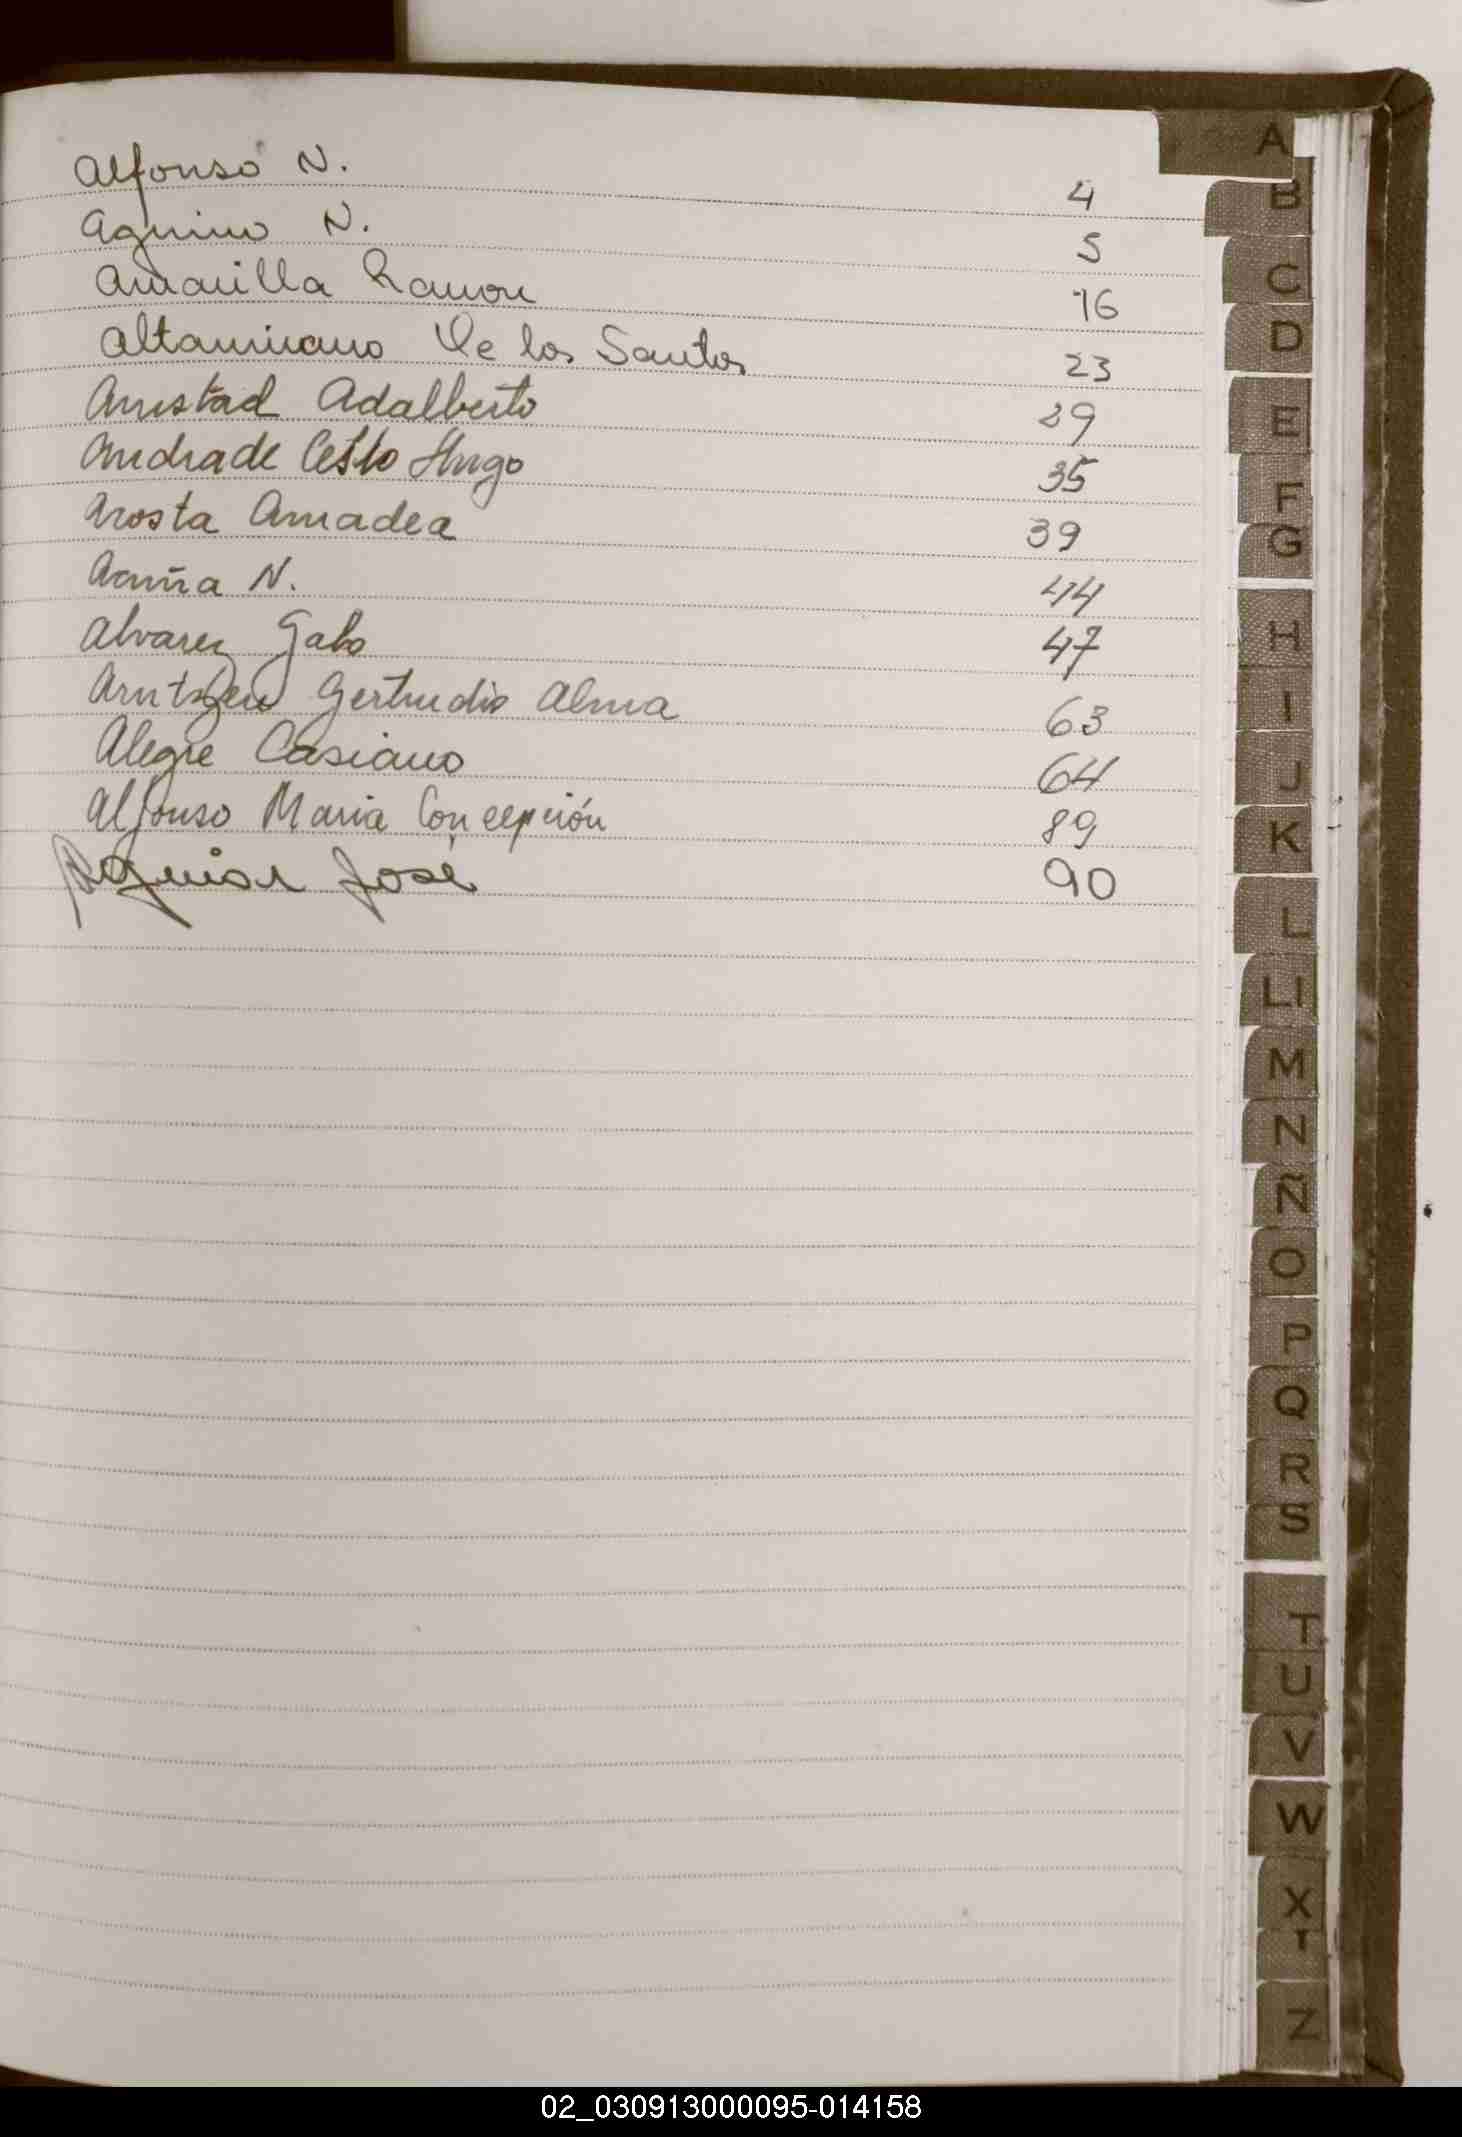 Alfonso N. 4
Aquino N. 5
Amarilla Ramon 16
Altamirano De los Santos 23
Amstad Adalberto 29
Andrade Celso Hugo 35
Arosta Amadea 39
Acuña N. 44
Alvarez Galo 47
Arntzen Gertrudis Alma 63
Alegre Casiano 64
Alfonso Maria Concepción 89
Aguiar José 90
A
B
C
D
E
F
G
H
I
J
K
L
Ll
M
N
Ñ
O
P
Q
R
S
T
U
V
W
X
Z
02_030913000095-014158